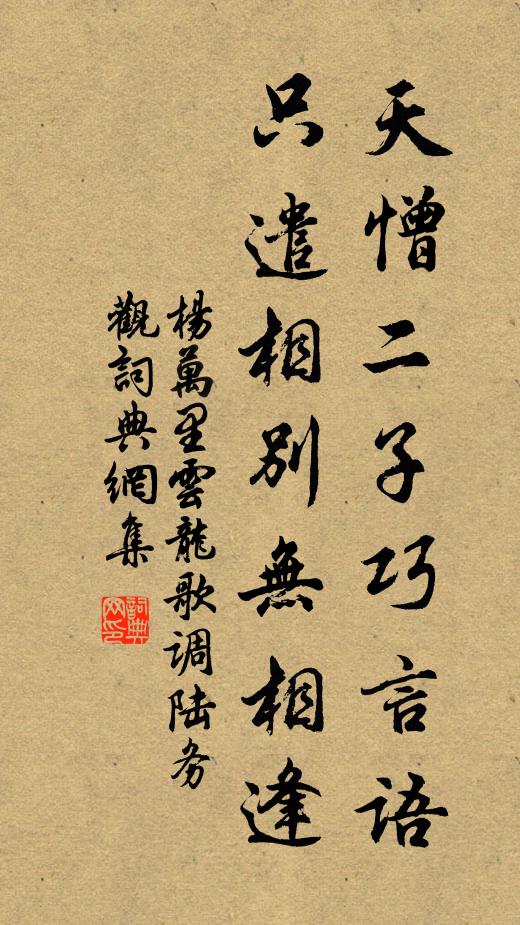 天憎二子巧言語
只遣相別無相逢
楊萬里雲龍歌调陆务
觀詞典網集
詞典
网印